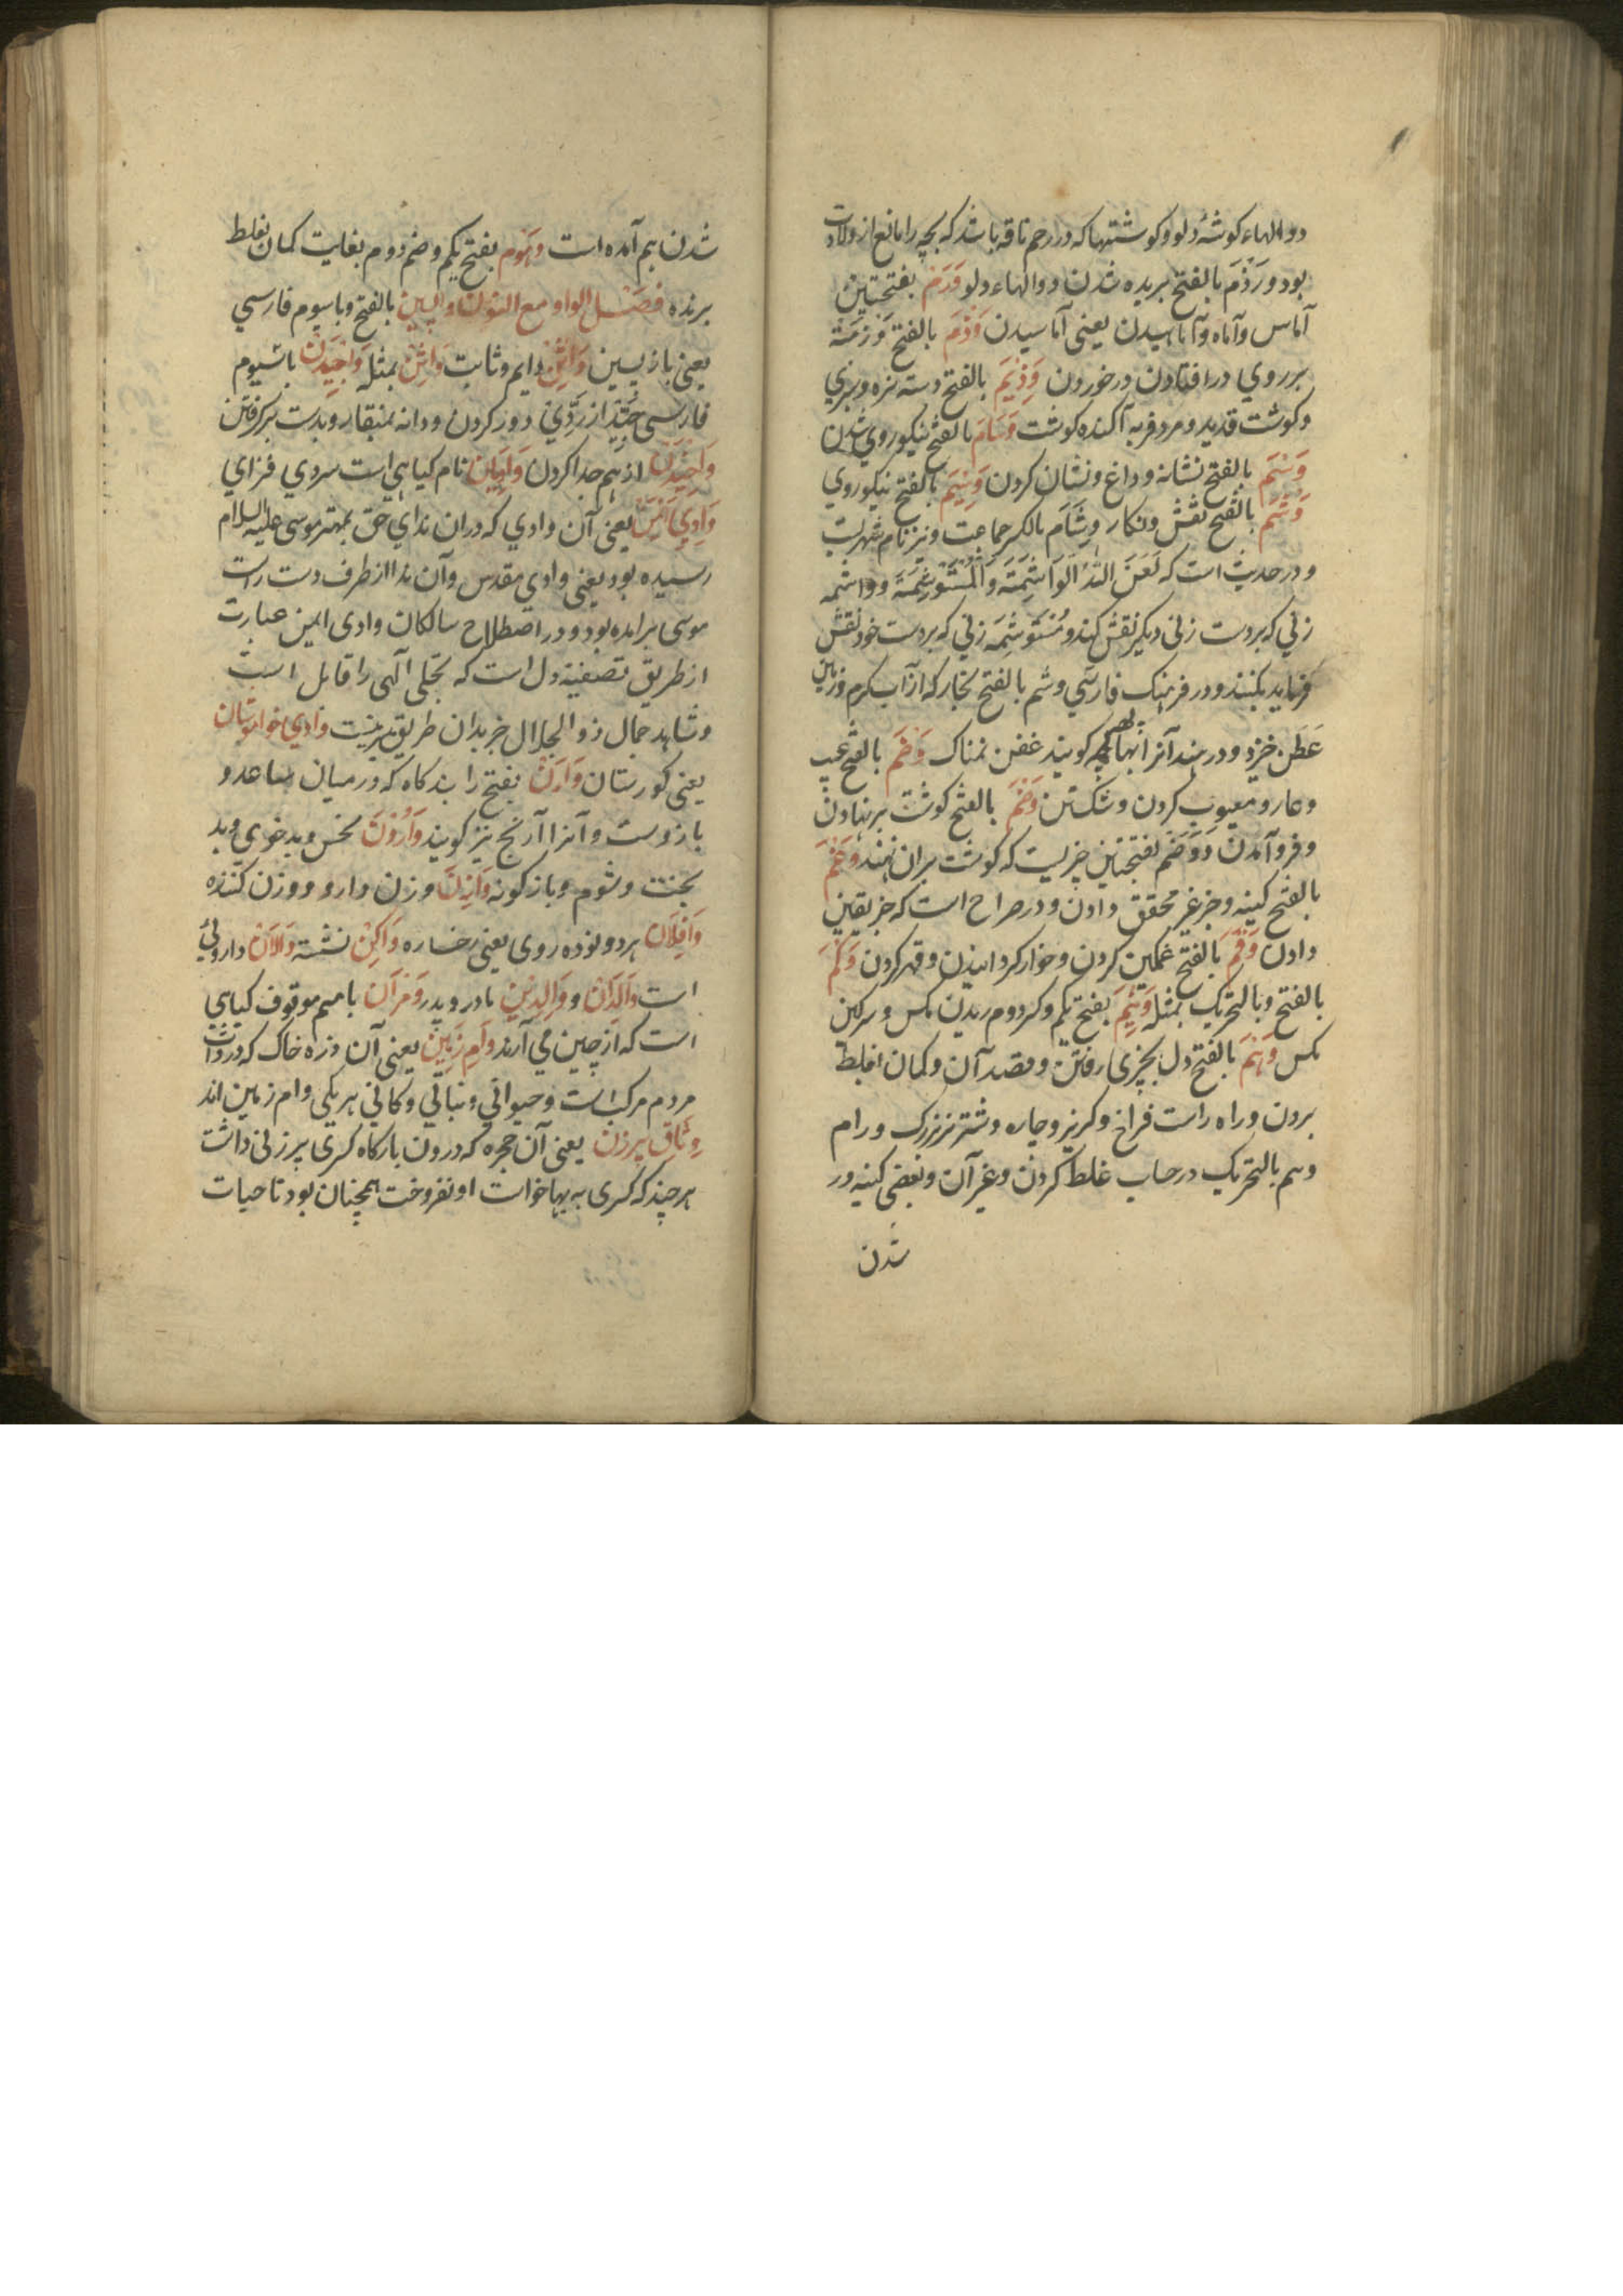 دوالهاء کوشهٔ دلو و کوشتها که در رحم ناقه باشد که بچه را مانع از ولادت
بود و رَذَمَ بالفتح بریده شدن دوالهاء دلو وَرَم بفتحتین
آماس و آماه و آماهیدن یعنی آماسیدن وَذَمَ بالفتح وَزمَة
بر روی در افتادن در خوردن وَزِیَم بالفتح دسته تره و بزی
و کوشت قدید و مرد فربه آکنده کوشت وَسَامَ بالفتح نیکو روی شدن
وَسَم بالفتح نشانه و داغ و نشان کردن وَسِیَم بالفتح نیکوروی
وَشَم بالفتح نقش و نکار وِشَام بالکسر جماعت و نیز نام شهریست
و در حدیث است که لَعَنَ اللّٰهُ الوَاشِمَتَه وَالمُسْتَوشِمَةَ و واشمه
زنی که بر دست زنی دیکر نقش کند و مُستَوشِمَه زنی که بر دست خود نقش
فرماید بکنند و در فرهنک فارسی وشم بالفتح بخار که از آب کرم و زمین
عَطن خیزد و در هند آنرا بهاپهه کویند عفن نمناک وَصَم بالفتح عیب
و عار و معیوب کردن و شکستن وَضَم بالفتح کوشت بر نهادن
و فرو آمدن وَوَضَم بفتحتین چیزیست که کوشت بران نهند وَغَم
بالفتح کینه و خبر غیر محقق دادن و در صراح است که خبر یقین
دادن وَقَم بالفتح غمکین کردن و خوار کردانیدن و قهر کردن وَکَم
بالفتح و بالتحریک بمثله وَنِیَم بفتح یکم و کسر دوم ریدن مکس و سرکین
مکس وَهَم بالفتح دل بچیزی رفتن و قصد آن و کمان افغلط
بردن و راه راست فراخ و کریز و چاره و شتر نر بزرک و رام
وهم بالتحریک در حساب غلط کردن و غیر آن و بعضی کینه ور
شدن
شدن هم آمده است وَهُوم بفتح یکم و ضم دوم بغایت کمان بغلط
برنده فصل الواو مع النون واپسین بالفتح و با سیوم فارسی
یعنی باز پسین وَاتِن دایم و ثابت وَاثِن بمثله وَاچیدن با سیوم
فارسی چیز از ردّی دور کردن و دانه بمنقار و بدست برکرفتن
وَاچِیدن از هم جدا کردن نام کیاهی است سردی فزای
وَادِیِ اَیمَن یعنی آن وادی که دران ندای حق بمهتر موسی علیه السلام
رسیده بود یعنی وادی مقدس و آن ندا از طرف دست راست
موسی برامده بود و در اصطلاح سالکان وادی ایمن عبارت
از طریق تصفیه دل است که تجلی آلهی را قابل است
و شاهد جمال ذو الجلال جز بدان طریق میسر نیست وادی خاموشان
یعنی کورستان وَارَن بفتح را بندکاه که در میان ساعد و
بازوست و آنرا آرنج نیز کویند وَارُون نحس و بد خوی و بد
بخت و شوم و باژکونه وَازِن وزن دارو و وزن کننده
وَافِلان هر دو توده روی یعنی رخساره وَاکِن نشسته وَالاَن داروئی
است وَالِدَان و وَالِدَین مادر و پدر وَمرَان با میم موقوف کیاهی
است که از چین می آرند وَام زمین یعنی آن ذره خاک که در ذات
مردم مرکب است و حیوانی و نباتی و کانی هر یکی وام زمین اند
وِثاقِ پیرزن یعنی آن حجره که درون بارکاه کسری پیرزنی داشت
هر چند که کسری به بها خواست او نفروخت همچنان بود تا حیات